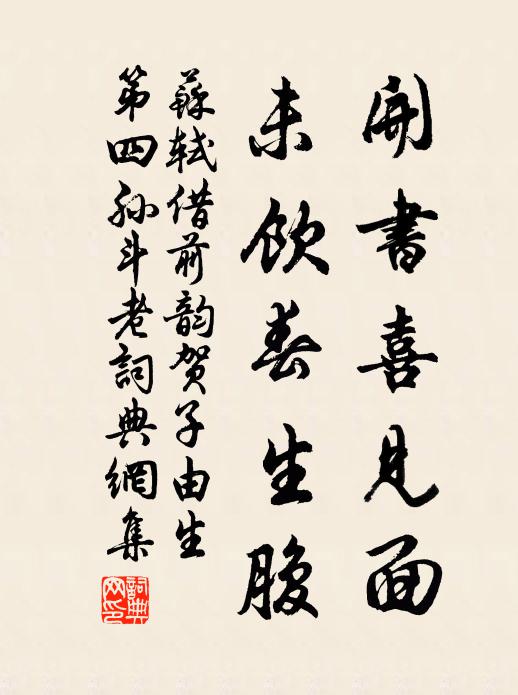 開書喜見面
未飲春生腹
蘇軾借前韵贺子由生
第四孙斗老詞典網集
詞典網印